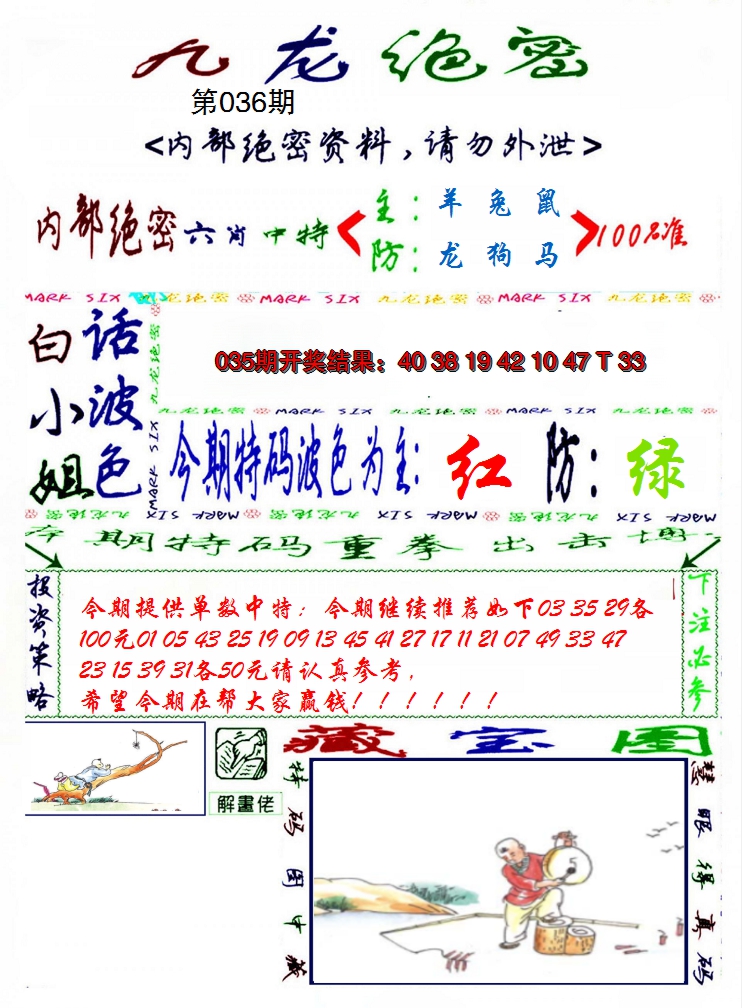 九龙绝密
第036期
<内部绝密资料,请勿外泄>
内部绝密六肖中特
主:羊 兔 鼠
防:龙 狗 马
100%准
MARK SIX 九龙绝密 MARK SIX 九龙绝密 MARK SIX 九龙绝密
白小姐
话波色
九龙绝密
MARK SIX
035期开奖结果:40 38 19 42 10 47 T 33
九龙绝密 MARK SIX 九龙绝密 MARK SIX 九龙绝密
今期特码波色为主:红 防:绿
九龙绝密 MARK SIX 九龙绝密 MARK SIX 九龙绝密 MARK SIX
本期特码重拳出击博
投资策略
今期提供单数中特;今期继续推荐如下03 35 29各
100元01 05 43 25 19 09 13 45 41 27 17 11 21 07 49 33 47
23 15 39 31各50元请认真参考,
希望今期在帮大家赢钱!!!!!!
下注必参
解畫佬
藏宝图
特码图中藏
5
慧眼得真码